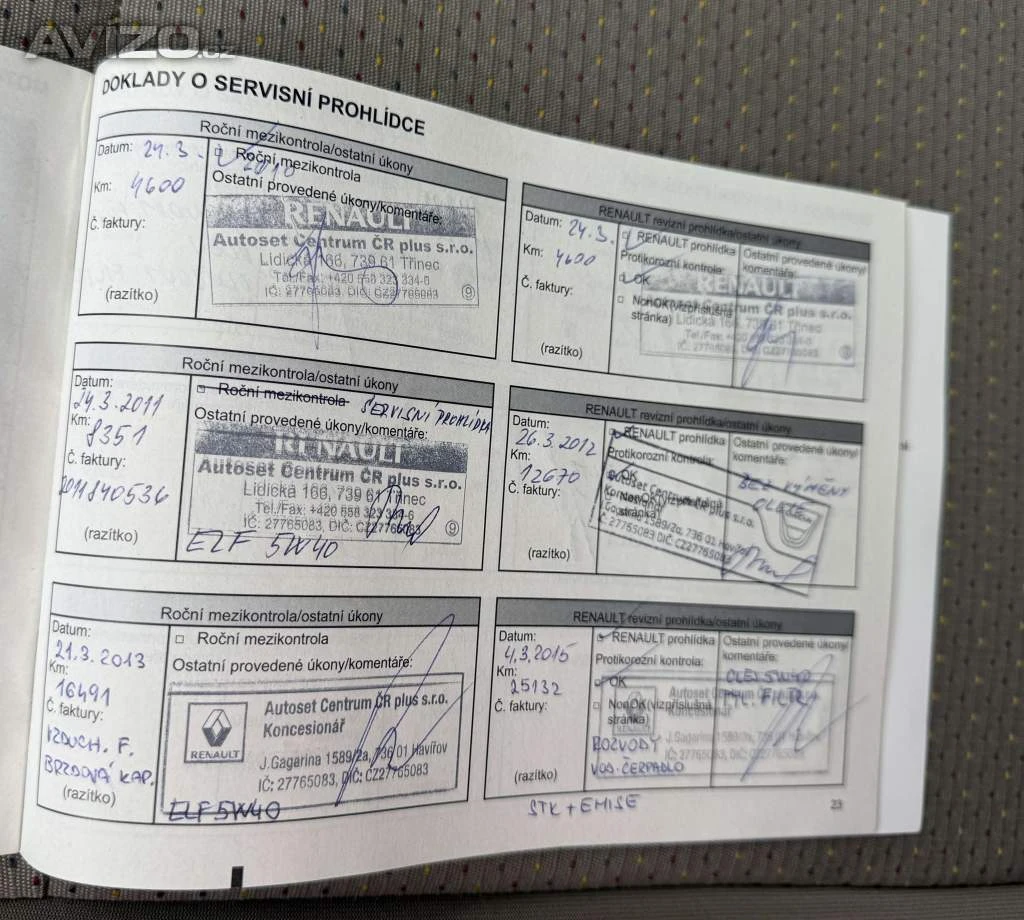 AVÍZO.cz
DOKLADY O SERVISNÍ PROHLÍDCE
Roční mezikontrola/ostatní úkony
Datum: 24.3.2010
□ Roční mezikontrola
Km: 4600
Ostatní provedené úkony/komentáře:
Č. faktury:
RENAULT
Autoset Centrum ČR plus s.r.o.
Lidická 166, 739 61 Třinec
Tel./Fax: +420 558 323 334-6
IČ: 27765083, DIČ: CZ27765083 ⑨
(razítko)
RENAULT revizní prohlídka/ostatní úkony
Datum: 24.3.
RENAULT prohlídka
Ostatní provedené úkony/
Km: 4600
Protikorozní kontrola:
komentáře:
OK
Č. faktury:
□ NonOK(viz příslušná
stránka)
RENAULT
Centrum ČR plus s.r.o.
Lidická 166, 739 61 Třinec
(razítko)
Roční mezikontrola/ostatní úkony
Datum:
24.3.2011
□ Roční mezikontrola SERVISNÍ PROHLÍDKA
Km:
8351
Ostatní provedené úkony/komentáře:
Č. faktury:
2011840536
RENAULT
Autoset Centrum ČR plus s.r.o.
Lidická 166, 739 61 Třinec
Tel./Fax: +420 558 323 334-6
IČ: 27765083, DIČ: CZ27765083 ⑨
(razítko)
ELF 5W40
RENAULT revizní prohlídka/ostatní úkony
Datum:
26.3.2012
RENAULT prohlídka
Ostatní provedené úkony/
Km:
12670
Protikorozní kontrola:
komentáře:
OK
BEZ VÝMĚNY
OLEJE
Č. faktury:
NonOK(viz příslušná
stránka)
Autoset Centrum ČR plus s.r.o.
Gagarina 1589/2a, 736 01 Havířov
IČ: 27765083, DIČ: CZ27765083
(razítko)
Roční mezikontrola/ostatní úkony
Datum:
21.3.2013
□ Roční mezikontrola
Km:
16491
Ostatní provedené úkony/komentáře:
Č. faktury:
VZDUCH. F.
BRZDOVÁ KAP.
(razítko)
RENAULT
Autoset Centrum ČR plus s.r.o.
Koncesionář
J.Gagarina 1589/2a, 736 01 Havířov
IČ: 27765083, DIČ: CZ27765083
ELF 5W40
RENAULT revizní prohlídka/ostatní úkony
Datum:
4.3.2015
RENAULT prohlídka
Ostatní provedené úkony/
Km:
25132
Protikorozní kontrola:
komentáře:
OK
OLEJ 5W40
FILTR
Č. faktury:
□ NonOK(viz příslušná
stránka)
RENAULT
Autoset Centrum
Koncesionář
J.Gagarina 1589/2a, 736 01 Havířov
IČ: 27765083, DIČ:
ROZVODY
VOD. ČERPADLO
(razítko)
STK + EMISE
23